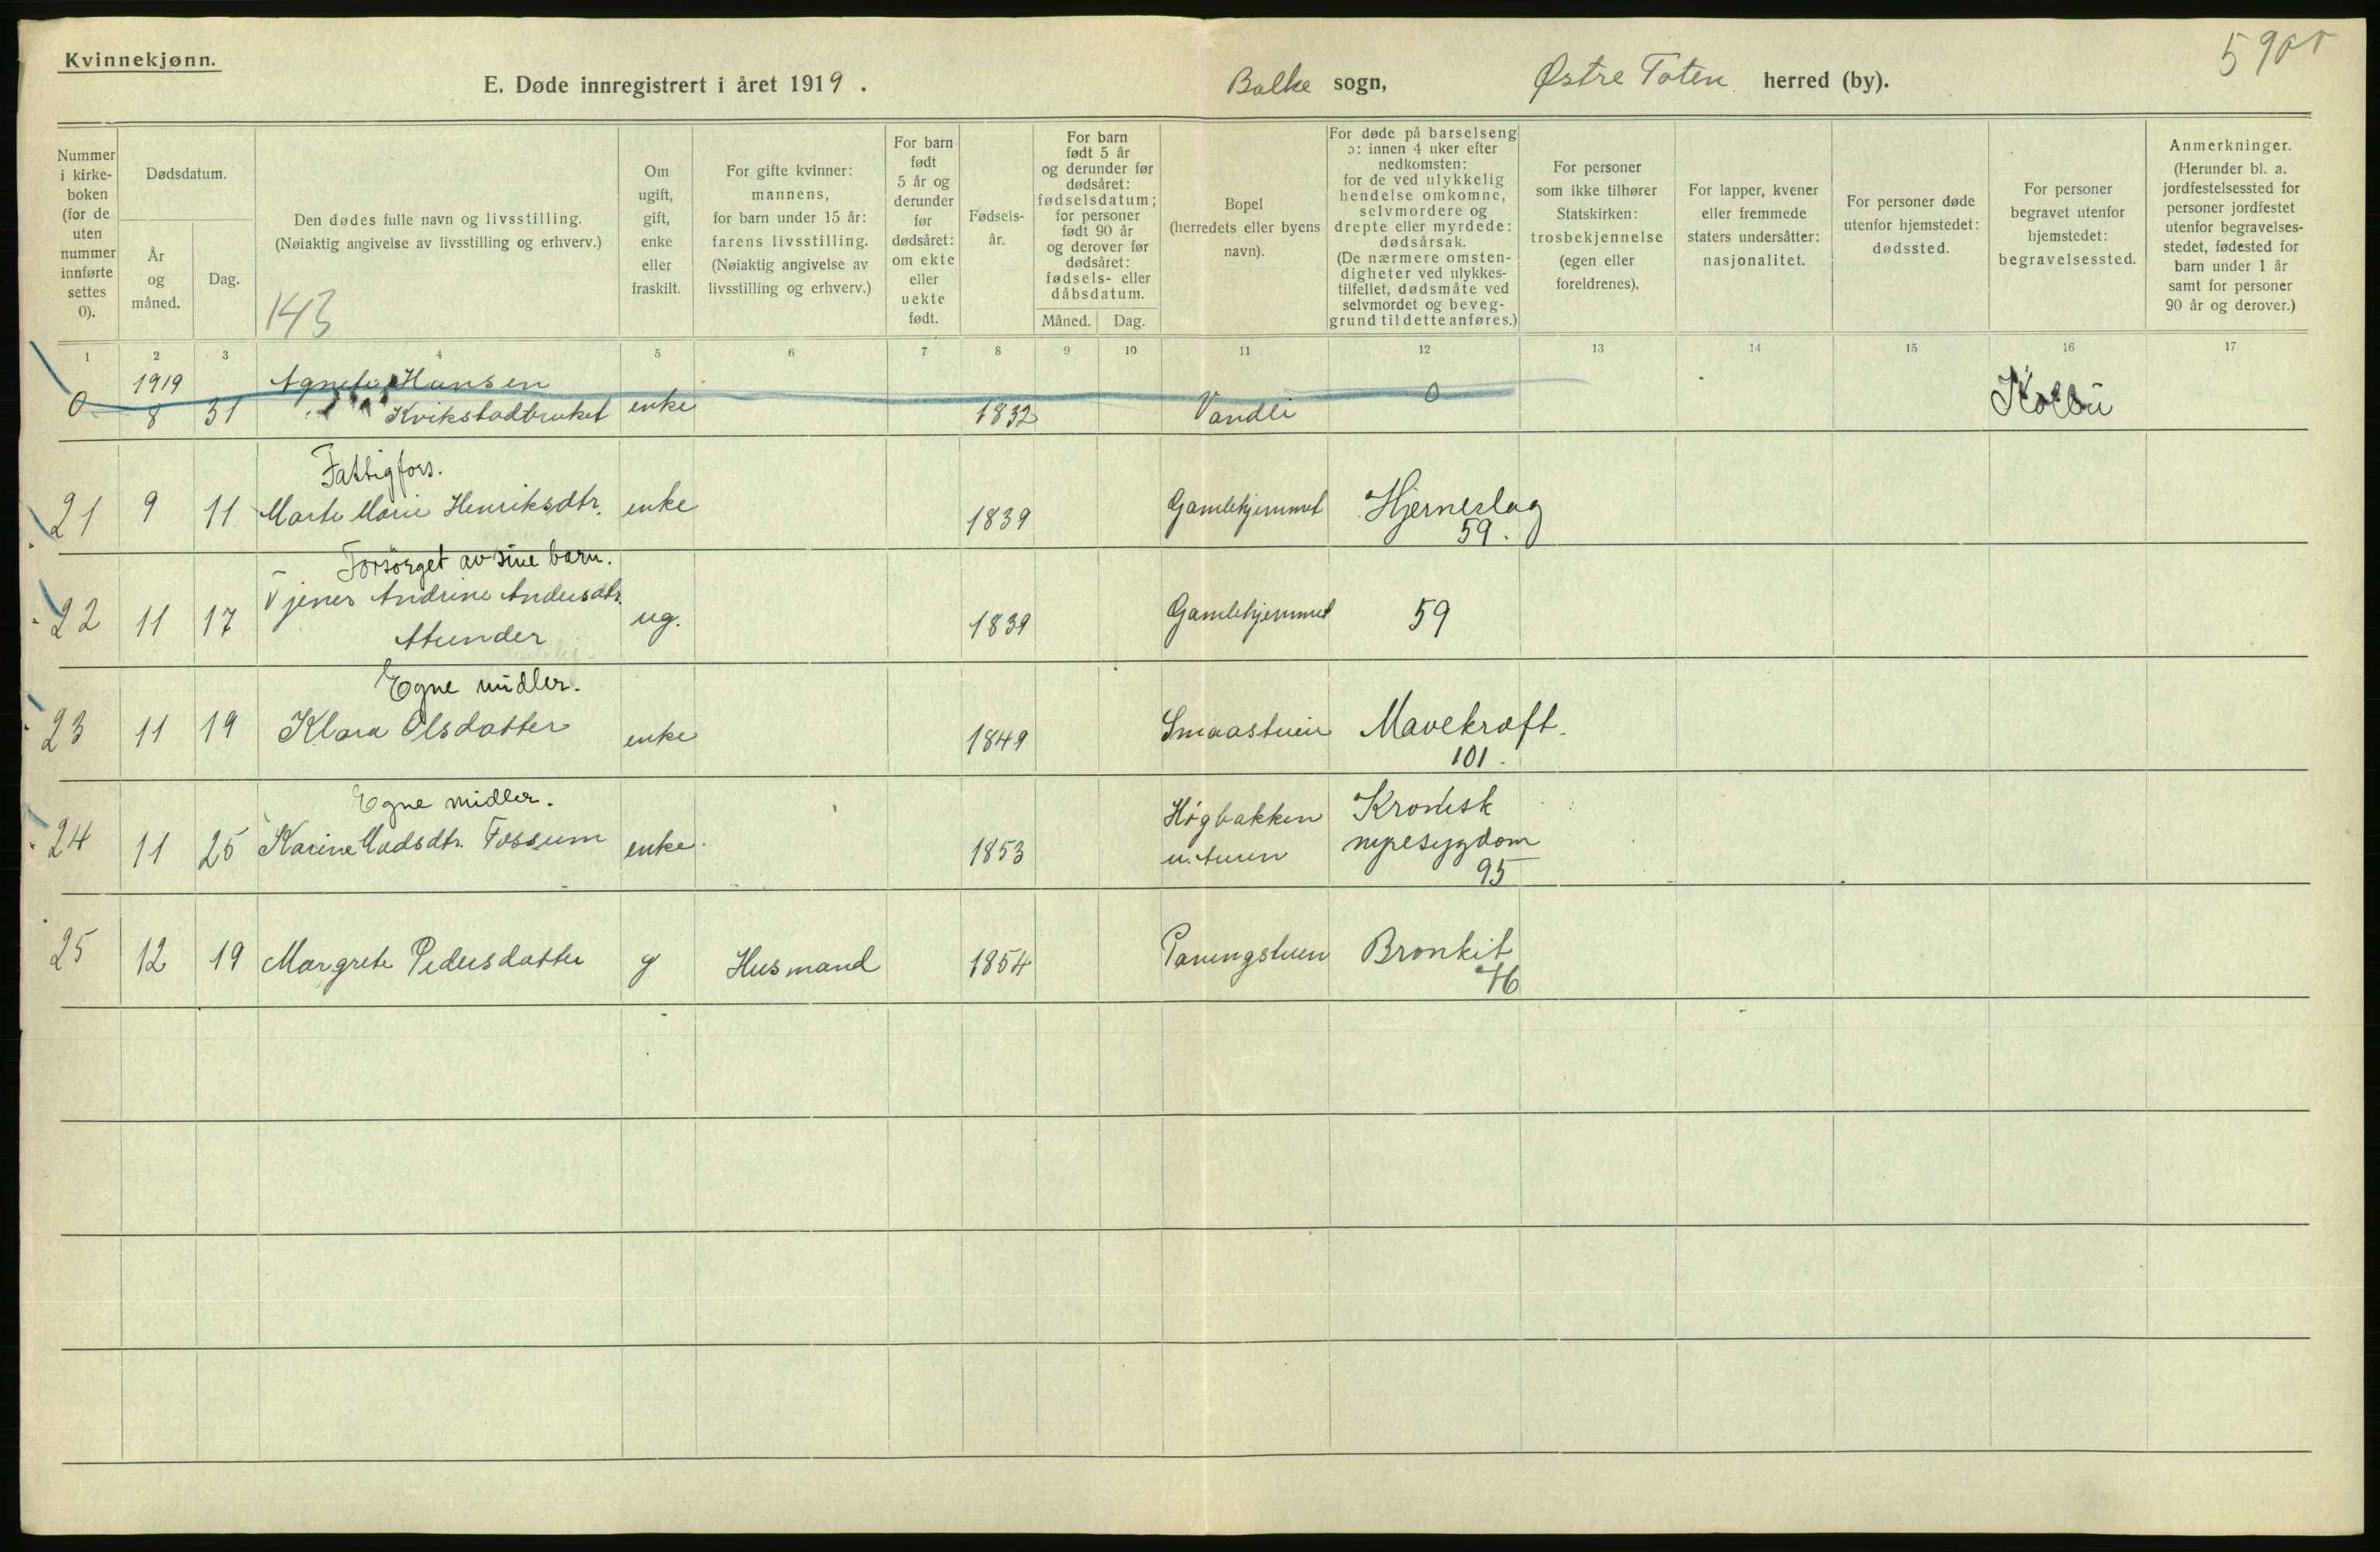 Kvinnekjønn.
E. Døde innregistrert i året 1919.
Balke sogn,
Østre Toten herred (by).
Nummer i kirke-
boken
(for de
uten
nummer
innførte
settes
0).
Dødsdatum.
År
og
måned.
Dag.
Den dødes fulle navn og livsstilling.
(Nøiaktig angivelse av livsstilling og erhverv.)
143
Om
ugift,
gift,
enke
eller
fraskilt.
For gifte kvinner:
mannens,
for barn under 15 år:
farens livsstilling.
(Nøiaktig angivelse av
livsstilling og erhverv.)
For barn
født
5 år og
derunder
før
dødsåret:
om ekte
eller
uekte
født.
Fødsels-
år.
For barn
født 5 år
og derunder før
dødsåret:
fødselsdatum;
for personer
født 90 år
og derover før
dødsåret:
fødsels- eller
dåbsdatum.
Måned. Dag.
Bopel
(herredets eller byens
navn).
For døde på barselseng
ɔ: innen 4 uker efter
nedkomsten:
for de ved ulykkelig
hendelse omkomne,
selvmordere og
drepte eller myrdede:
dødsårsak.
(De nærmere omsten-
digheter ved ulykkes-
tilfellet, dødsmåte ved
selvmordet og beveg-
grund til dette anføres.)
For personer
som ikke tilhører
Statskirken:
trosbekjennelse
(egen eller
foreldrenes).
For lapper, kvener
eller fremmede
staters undersåtter:
nasjonalitet.
For personer døde
utenfor hjemstedet:
dødssted.
For personer
begravet utenfor
hjemstedet:
begravelsessted.
Anmerkninger.
(Herunder bl. a.
jordfestelsessted for
personer jordfestet
utenfor begravelses-
stedet, fødested for
barn under 1 år
samt for personer
90 år og derover.)
1 2 3 4 5 6 7 8 9 10 11 12 13 14 15 16 17
1919 Agnete Hansen
0 8 31 Kvikstadbruket enke 1832 Vandli 0 Kolbu
Fattigfors.
21 9 11 Marte Marie Henriksdtr. enke 1839 Gamlehjemmet Hjerneslag
59.
Forsörget av sine barn.
22 11 17 Tjener Andrine Andersdtr. ug. 1839 Gamlehjemmet 59
Egne midler.
23 11 19 Klara Olsdatter enke 1849 Smaastuen Mavekræft.
101.
Egne midler.
24 11 25 Karine Madsdtr. Fossum enke 1853 Høgbakken Kronisk
nyresygdom
95
25 12 19 Margrete Pedersdatter g Husmand 1854 Bronkit